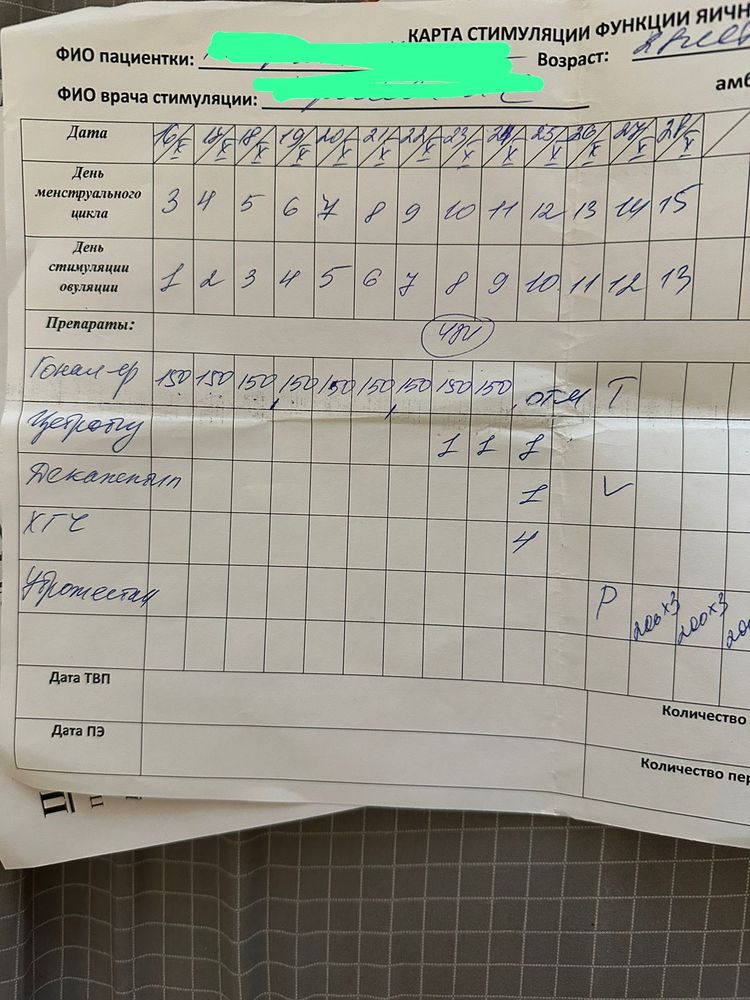 КАРТА СТИМУЛЯЦИИ ФУНКЦИИ ЯИЧН
ФИО пациентки: Возраст:
ФИО врача стимуляции: амб
Дата 16/X 17/X 18/X 19/X 20/X 21/X 22/X 23/X 24/X 25/X 26/X 27/X 28/X
День менструального цикла 3 4 5 6 7 8 9 10 11 12 13 14 15
День стимуляции овуляции 1 2 3 4 5 6 7 8 9 10 11 12 13
Препараты:
Гонал-ф 150 150 150 150 150 150 150 150 150 отм Т
Цетротид 1 1 1
Декапептил 1 V
ХГЧ 4
Утрожестан Р 200х3 200х3 200
Дата ТВП
Количество
Дата ПЭ
Количество пер